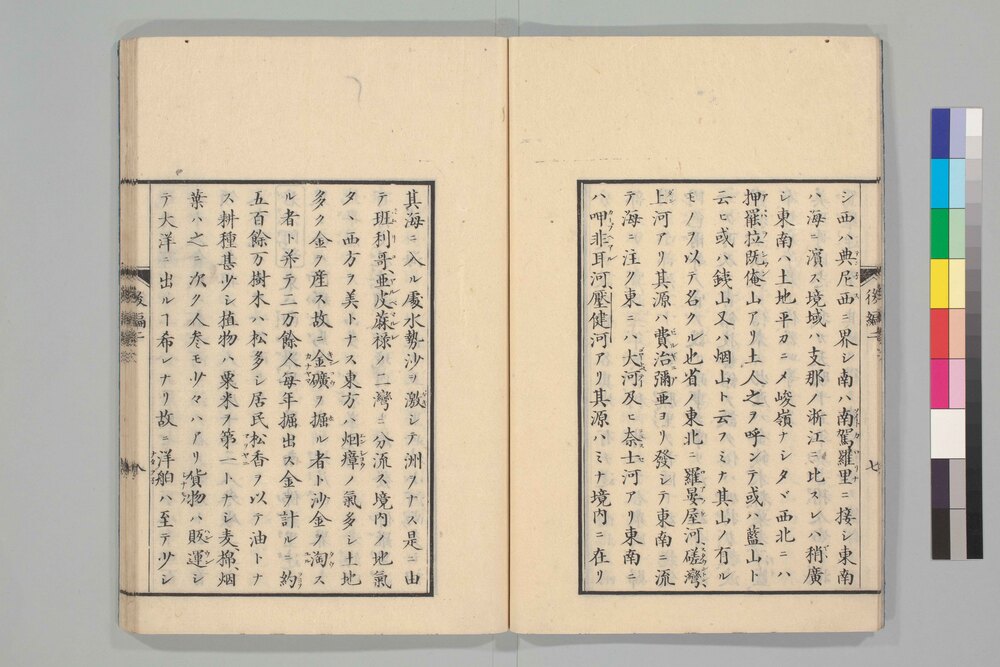 シ西ハ典尼西ニ界シ南ハ南駕羅里ニ接シ東南
ハ海ニ濱ス境域ハ支那ノ浙江ニ比スレハ稍廣
シ東南ハ土地平カニメ峻嶺ナシタヾ西北ニハ
押罹拉既俺山アリ土人之ヲ呼ンテ或ハ藍山ト
云ヒ或ハ鉄山又ハ烟山ト云フミナ其山ノ有ル
モノヲ以テ名クル也省ノ東北ニ羅晏屋河磋灣
上河アリ其源ハ費治彌亜ヨリ發シテ東南ニ流
テ海ニ注ク東ニハ大河及ヒ奈士河アリ東南ニ
ハ呷非耳河壓健河アリ其源ハミナ境内ニ在リ
後編二
七
其海ニ入ル處水勢沙ヲ激シテ洲ヲナス是ニ由
テ班利哥亜皮蔴祿ノ二灣ニ分流ス境内ノ地氣
タヽ西方ヲ美トナス東方ハ烟瘴ノ氣多シ土地
多ク金ヲ産ス故ニ金礦ヲ掘ル者ト沙金ヲ淘ス
ル者ト并テ二万餘人毎年掘出ス金ヲ計ルニ約
五百餘万樹木ハ松多シ居民松香ヲ以テ油トナ
ス耕種甚少シ植物ハ粟米ヲ第一トナシ麦棉烟
葉ハ之ニ次ク人参モ少々ハアリ貨物ハ販運シ
テ大洋ニ出ルヿ希レナリ故ニ洋舶ハ至テ少シ
後編二
八